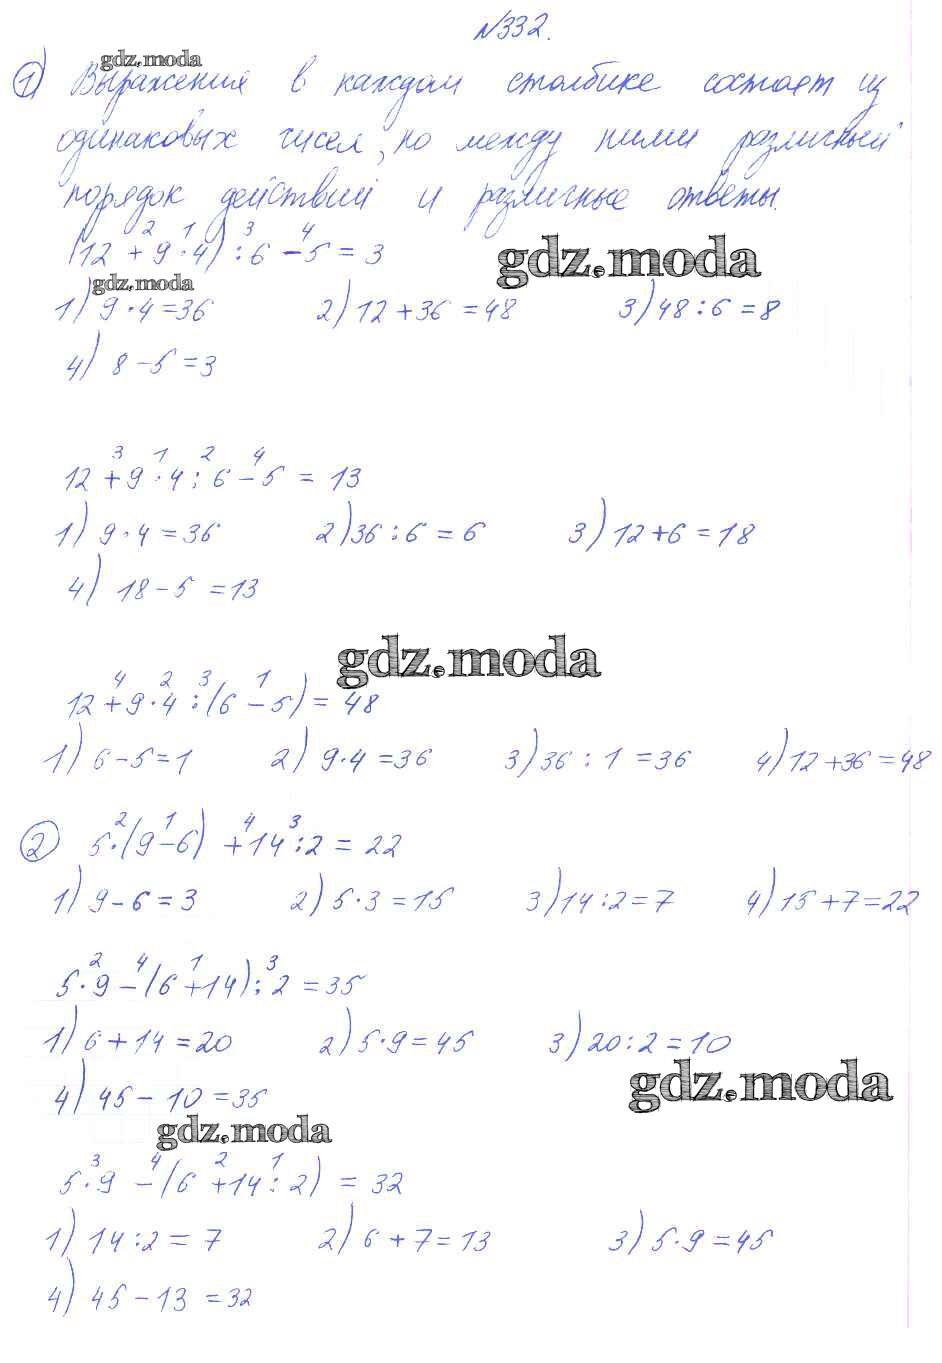 №332.
gdz.moda
1) Выражения в каждом столбике состоят из
одинаковых чисел, но между ними различный
порядок действий и различные ответы.
2 1 3 4
(12 + 9 · 4) : 6 – 5 = 3
gdz.moda
gdz.moda
1) 9 · 4 = 36 2) 12 + 36 = 48 3) 48 : 6 = 8
4) 8 – 5 = 3
3 1 2 4
12 + 9 · 4 : 6 – 5 = 13
1) 9 · 4 = 36 2) 36 : 6 = 6 3) 12 + 6 = 18
4) 18 – 5 = 13
gdz.moda
4 2 3 1
12 + 9 · 4 : (6 – 5) = 48
1) 6 – 5 = 1 2) 9 · 4 = 36 3) 36 : 1 = 36 4) 12 + 36 = 48
2 1 4 3
2 5 · (9 – 6) + 14 : 2 = 22
1) 9 – 6 = 3 2) 5 · 3 = 15 3) 14 : 2 = 7 4) 15 + 7 = 22
2 4 1 3
5 · 9 – (6 + 14) : 2 = 35
1) 6 + 14 = 20 2) 5 · 9 = 45 3) 20 : 2 = 10
gdz.moda
4) 45 – 10 = 35
gdz.moda
3 4 2 1
5 · 9 – (6 + 14 : 2) = 32
1) 14 : 2 = 7 2) 6 + 7 = 13 3) 5 · 9 = 45
4) 45 – 13 = 32